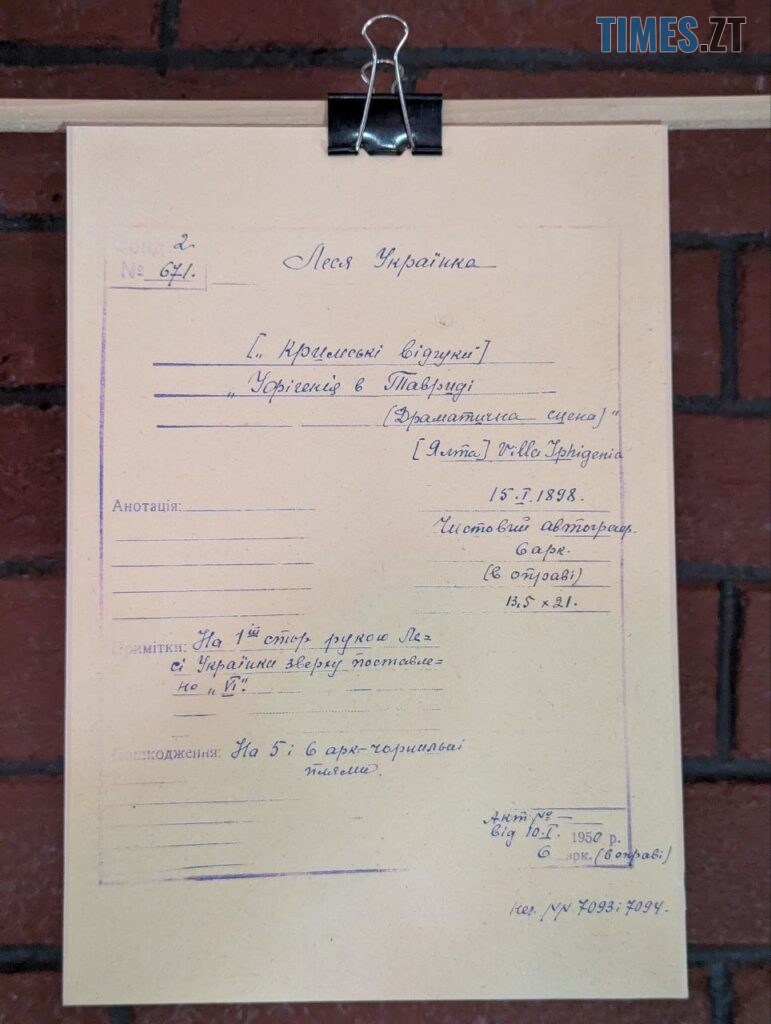 TIMES.ZT
Фонд 2
№ 671.
Леся Українка
[„Кримські відгуки"]
„Іфігенія в Тавриді
(Драматична сцена)"
[Ялта] Villa Iphigenia
15.I.1898.
Анотація:
Чистовий автограф.
6 арк.
(в оправі)
13,5 x 21.
Примітки: На 1ій стор рукою Ле=
сі Українки зверху поставле=
но „VI".
Пошкодження: На 5 і 6 арк-чорнильні
плями.
Акт № —
від 10.I. 1950 р.
6 арк. (в оправі)
№№ 7093 і 7094.